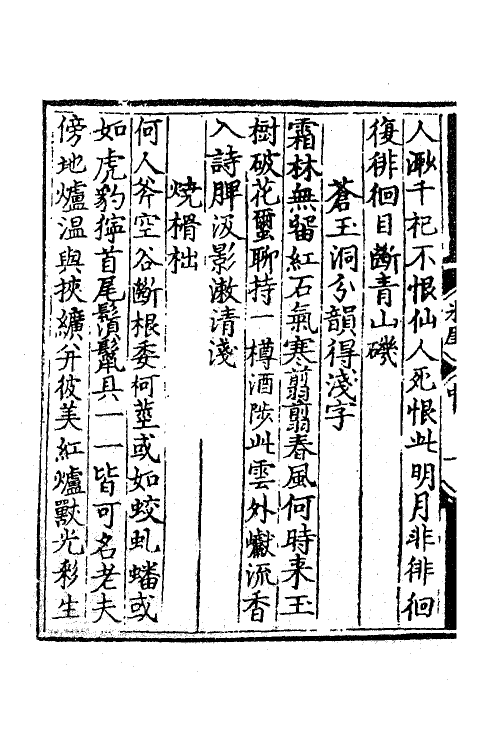 人㴱千杞不恨仙人死恨此明月非徘徊
復徘徊目斷青山磯
蒼玉洞分韻得淺字
霜林無留紅石氣寒翦翦春風何時来玉
樹破花蠒聊持一樽酒陟此雲外巘流香
入詩脾汲影漱清淺
燒榾柮
何人斧空谷斷根委何莖或如蛟虬蟠或
如虎豹獰首尾鬚鬣具一一皆可名老夫
傍地爐温與挾纊并彼美紅爐獸光彩生
中
一